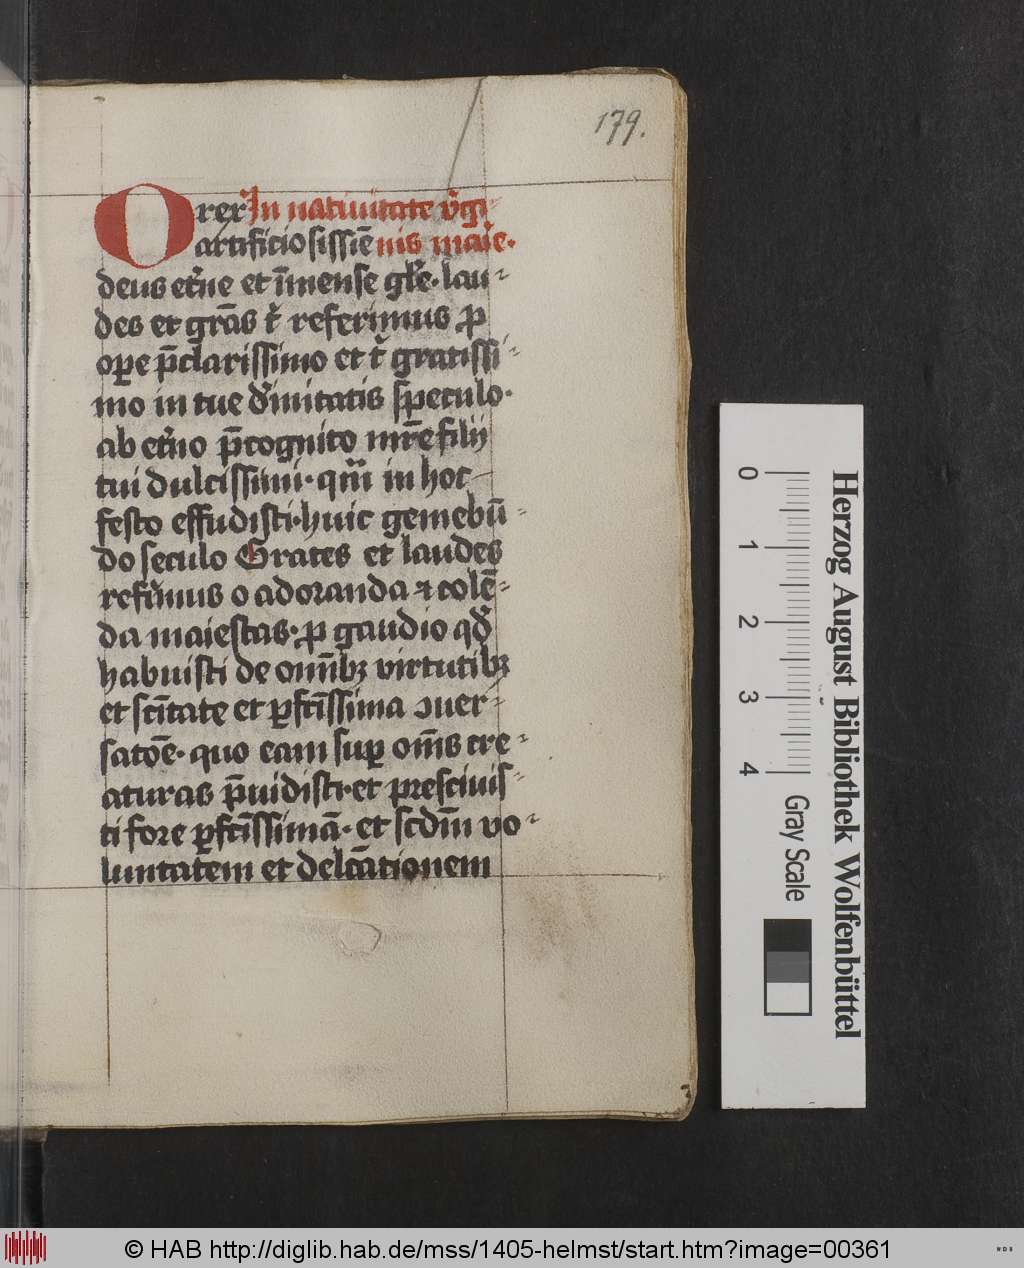 179.
Orer In natiuitate v̾gi
artificiosissiē nis maie.
deus et̾ne et īmense gl̾e. lau⸗
des et grās t̾ referimus ꝓ
oꝑe p̄clarissimo et t̾ gratissi⸗
mo in tue diuinitatis speculo.
ab et̾no p̄cognito mr̄e filij
tui dulcissimi. qm̄ in hoc
festo effudisti. huic gemebū⸗
do seculo Grates et laudes
ref̾imus o adoranda ⁊ colē⸗
da maiestas. ꝓ gaudio qd̾
habuisti de omībꝫ virtutibꝫ
et scītate et ꝑfc̄issima ɔuer⸗
satōe. quo eam suꝑ om̄s cre⸗
aturas p̄uidisti. et presciuis⸗
ti fore ꝑfc̄issimā. et scd̄m vo⸗
luntatem et delc̄ationem
Herzog August Bibliothek Wolfenbüttel
0 1 2 3 4 Gray Scale
© HAB http://diglib.hab.de/mss/1405-helmst/start.htm?image=00361